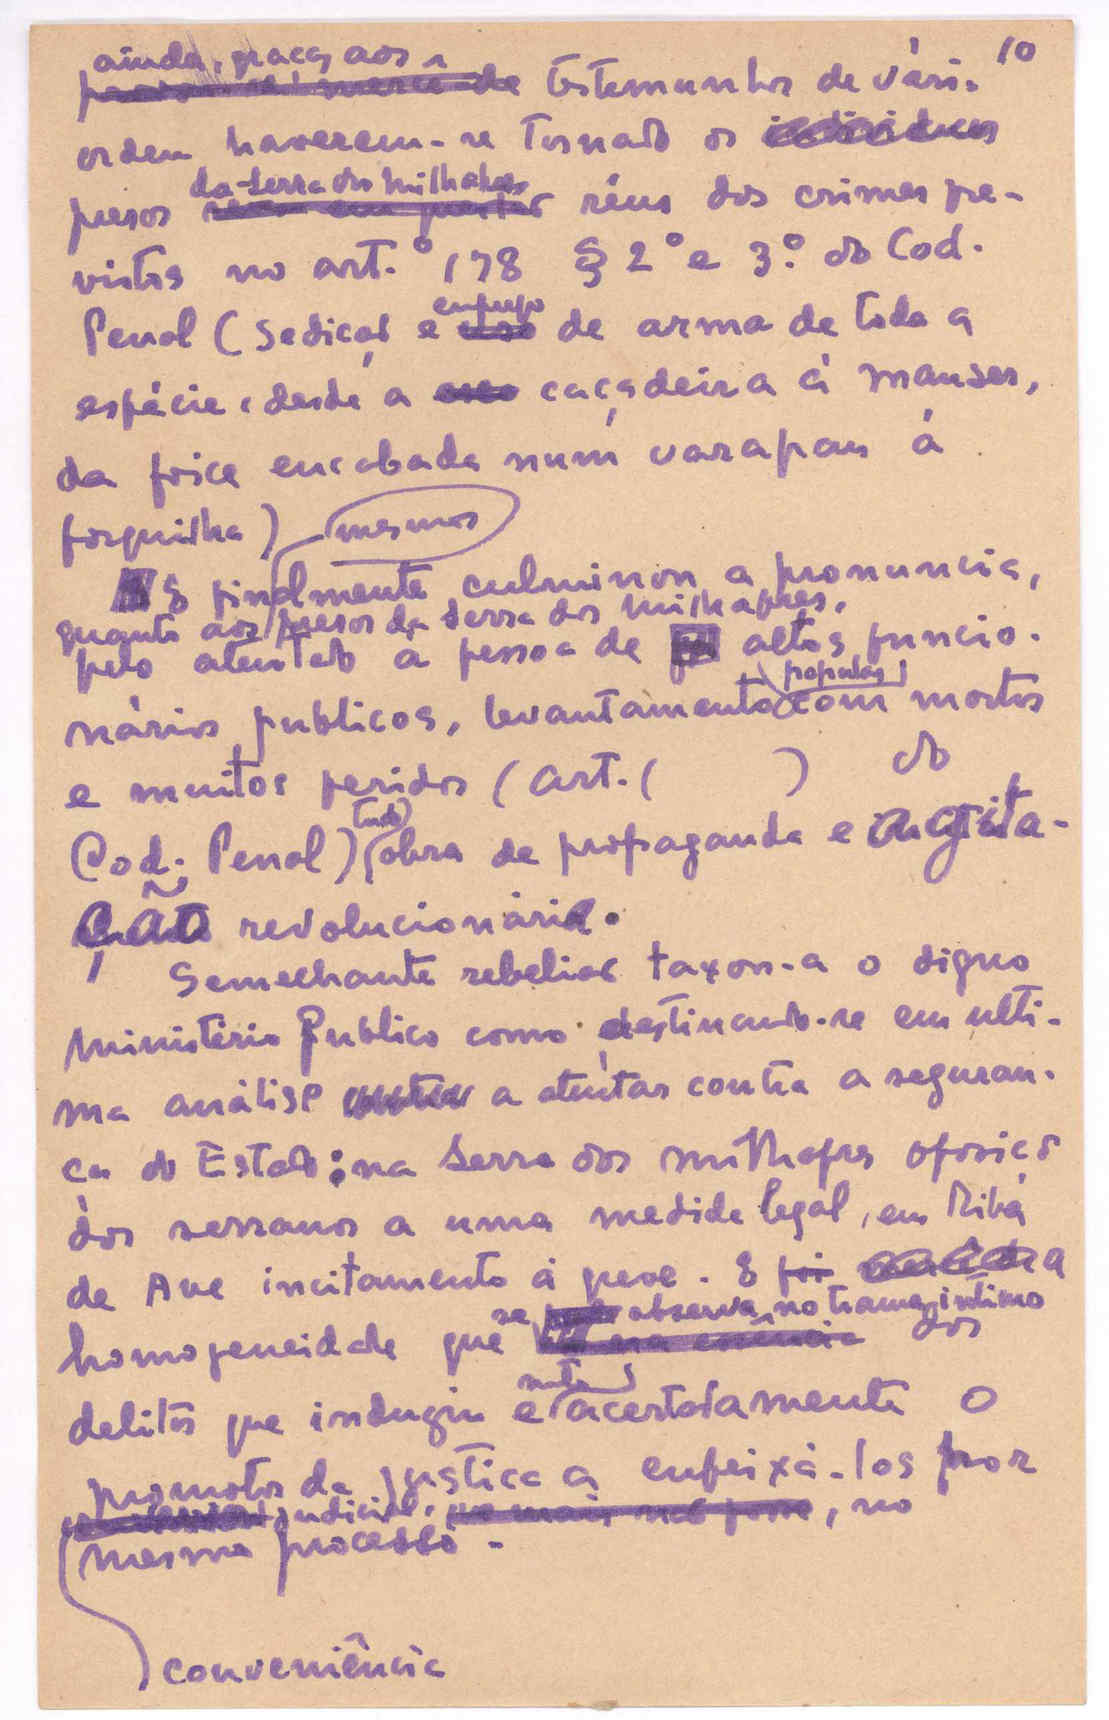 10
ainda, graças aos
testemunhos de vári.
ordem haverem-se tornado os
presos da serra dos milhafres réus dos crimes pre-
vistos no art.º 178 § 2º e 3.º do Cod.
Penal (Sedição e emprego de arma de toda a
espécie, desde a caçadeira á mauser,
da foice encabada num varapau á
forquilha)
mesmos
E finalmente culminou a pronuncia,
quanto aos presos da serra dos milhafres,
pelo atentado a pessoa de altos funcio-
populares
nários publicos, levantamento com mortos
e muitos feridos (art. ( ) do
Cod. Penal) tudo obra de propaganda e agita-
ção revolucionária.
Semelhante rebelião taxou-a o digno
Ministério Publico como destinando-se em ulti-
ma análise a atentar contra a seguran-
ça do Estado: na Serra dos milhafres oposição
dos serranos a uma medida legal, em Riba
de Ave incitamento á greve. E foi a
homogeneidade que se observa, no trama intimo dos
delitos que induziu e acertadamente o
promotor da justiça a enfeixá-los por
judicial, no
mesmo processo.
conveniência